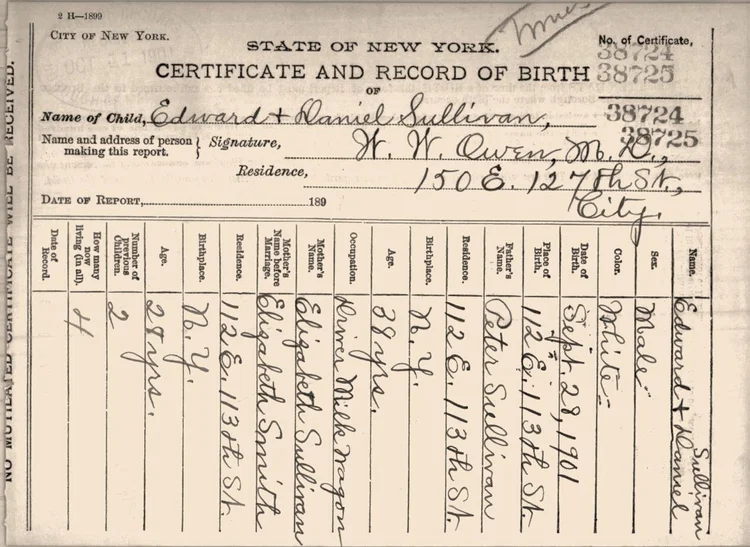 2 H—1899
CITY OF NEW YORK.
STATE OF NEW YORK.
No. of Certificate,
38724
38725
CERTIFICATE AND RECORD OF BIRTH
OF
Name of Child, Edward + Daniel Sullivan,
38724
38725
Name and address of person making this report. } Signature, W. W. Owen, M. D.,
Residence, 150 E. 127th St.,
City.
DATE OF REPORT, 189
Name. Edward + Daniel Sullivan
Sex. Male
Color. White
Date of Birth. Sept. 28, 1901
Place of Birth. 112 E. 113th St.
Father's Name. Peter Sullivan
Residence. 112 E. 113th St.
Birthplace. N. Y.
Age. 38 yrs.
Occupation. Driver Milk Wagon
Mother's Name. Elizabeth Sullivan
Mother's Name before Marriage. Elizabeth Smith
Residence. 112 E. 113th St.
Birthplace. N. Y.
Age. 28 yrs.
Number of previous Children. 2
How many now living (in all). 4
Date of Record.
NO MUTILATED CERTIFICATE WILL BE RECEIVED.